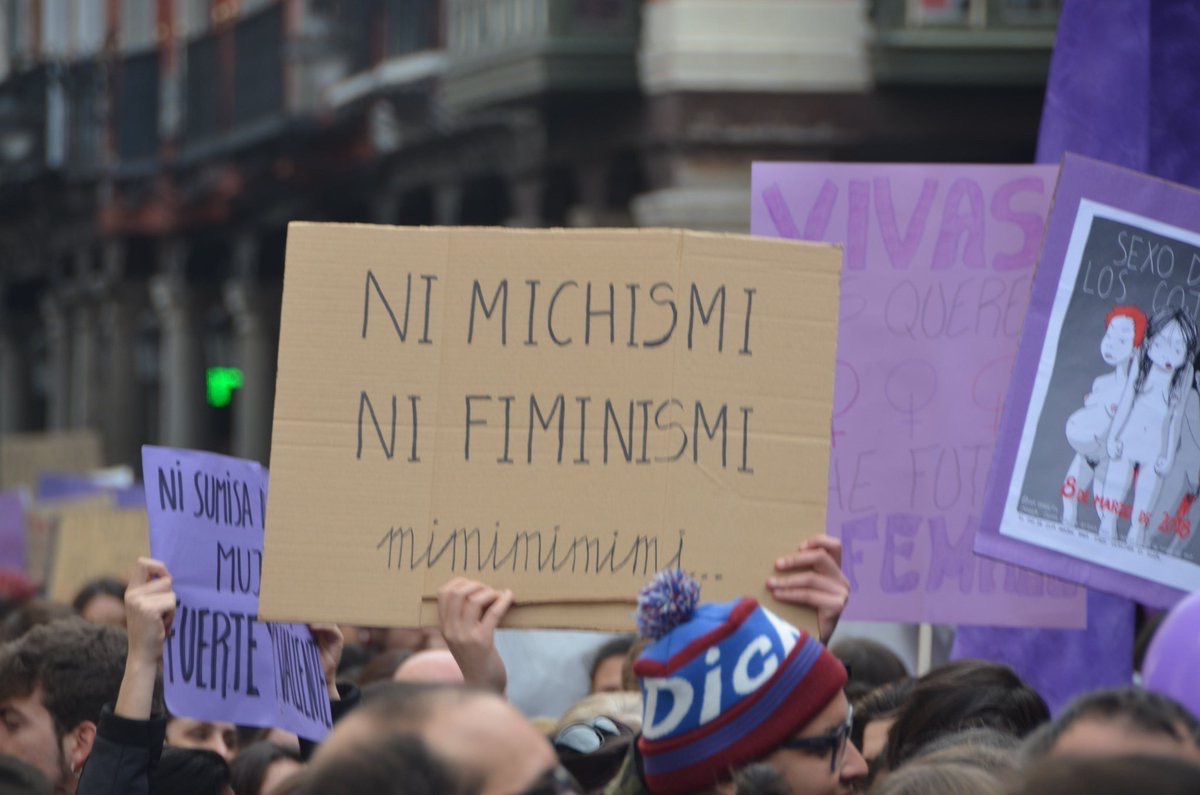 NI MICHISMI
NI FIMINISMI
mimimimimi...
NI SUMISA
FUERTE
Y VALIENTE
VIVAS
QUEREMOS
SEXO D
LOS CO
8 DE MARZO DE 2018
Dick